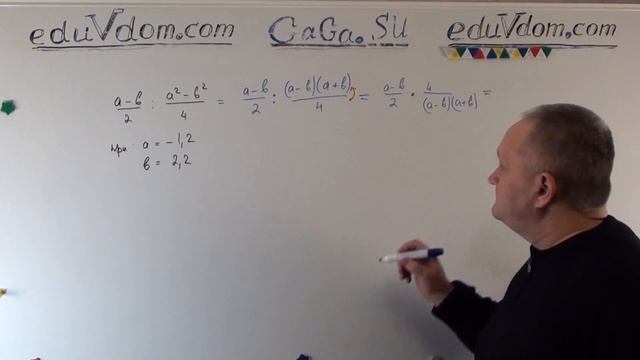 eduVdom.com CaGa.SU eduVdom.com
(a-в)/2 : (a²-в²)/4 = (a-в)/2 : (a-в)(a+в)/4 = (a-в)/2 • 4/((a-в)(a+в)) =
при a = -1,2
в = 2,2